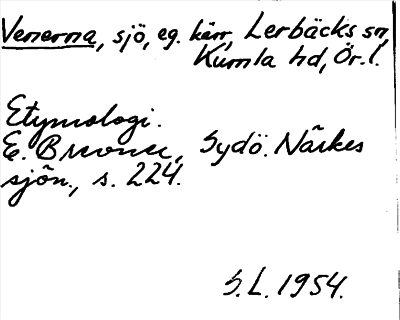 Venerna, sjö, eg. kärr, Lerbäcks sn,
Kumla hd, Ör. l.
Etymologi.
E. Brevner, Sydö. Närkes
sjön., s. 224.
S.L. 1954.